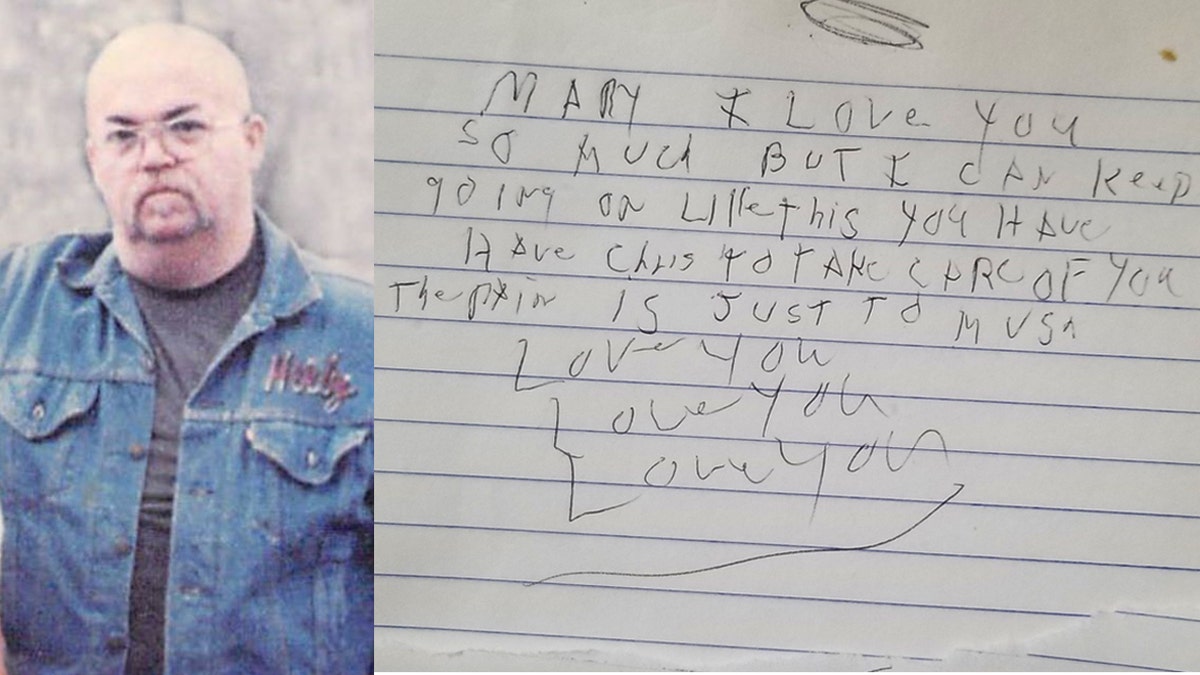 MARY I LOVE YOU
SO MUCH BUT I CAN KEEP
going on LIKE this YOU HAVE
HAVE Chris TO TAKE CARE OF YOU
The pain IS JUST TO MUSh
Love YOU
Love YOU
Love YOU